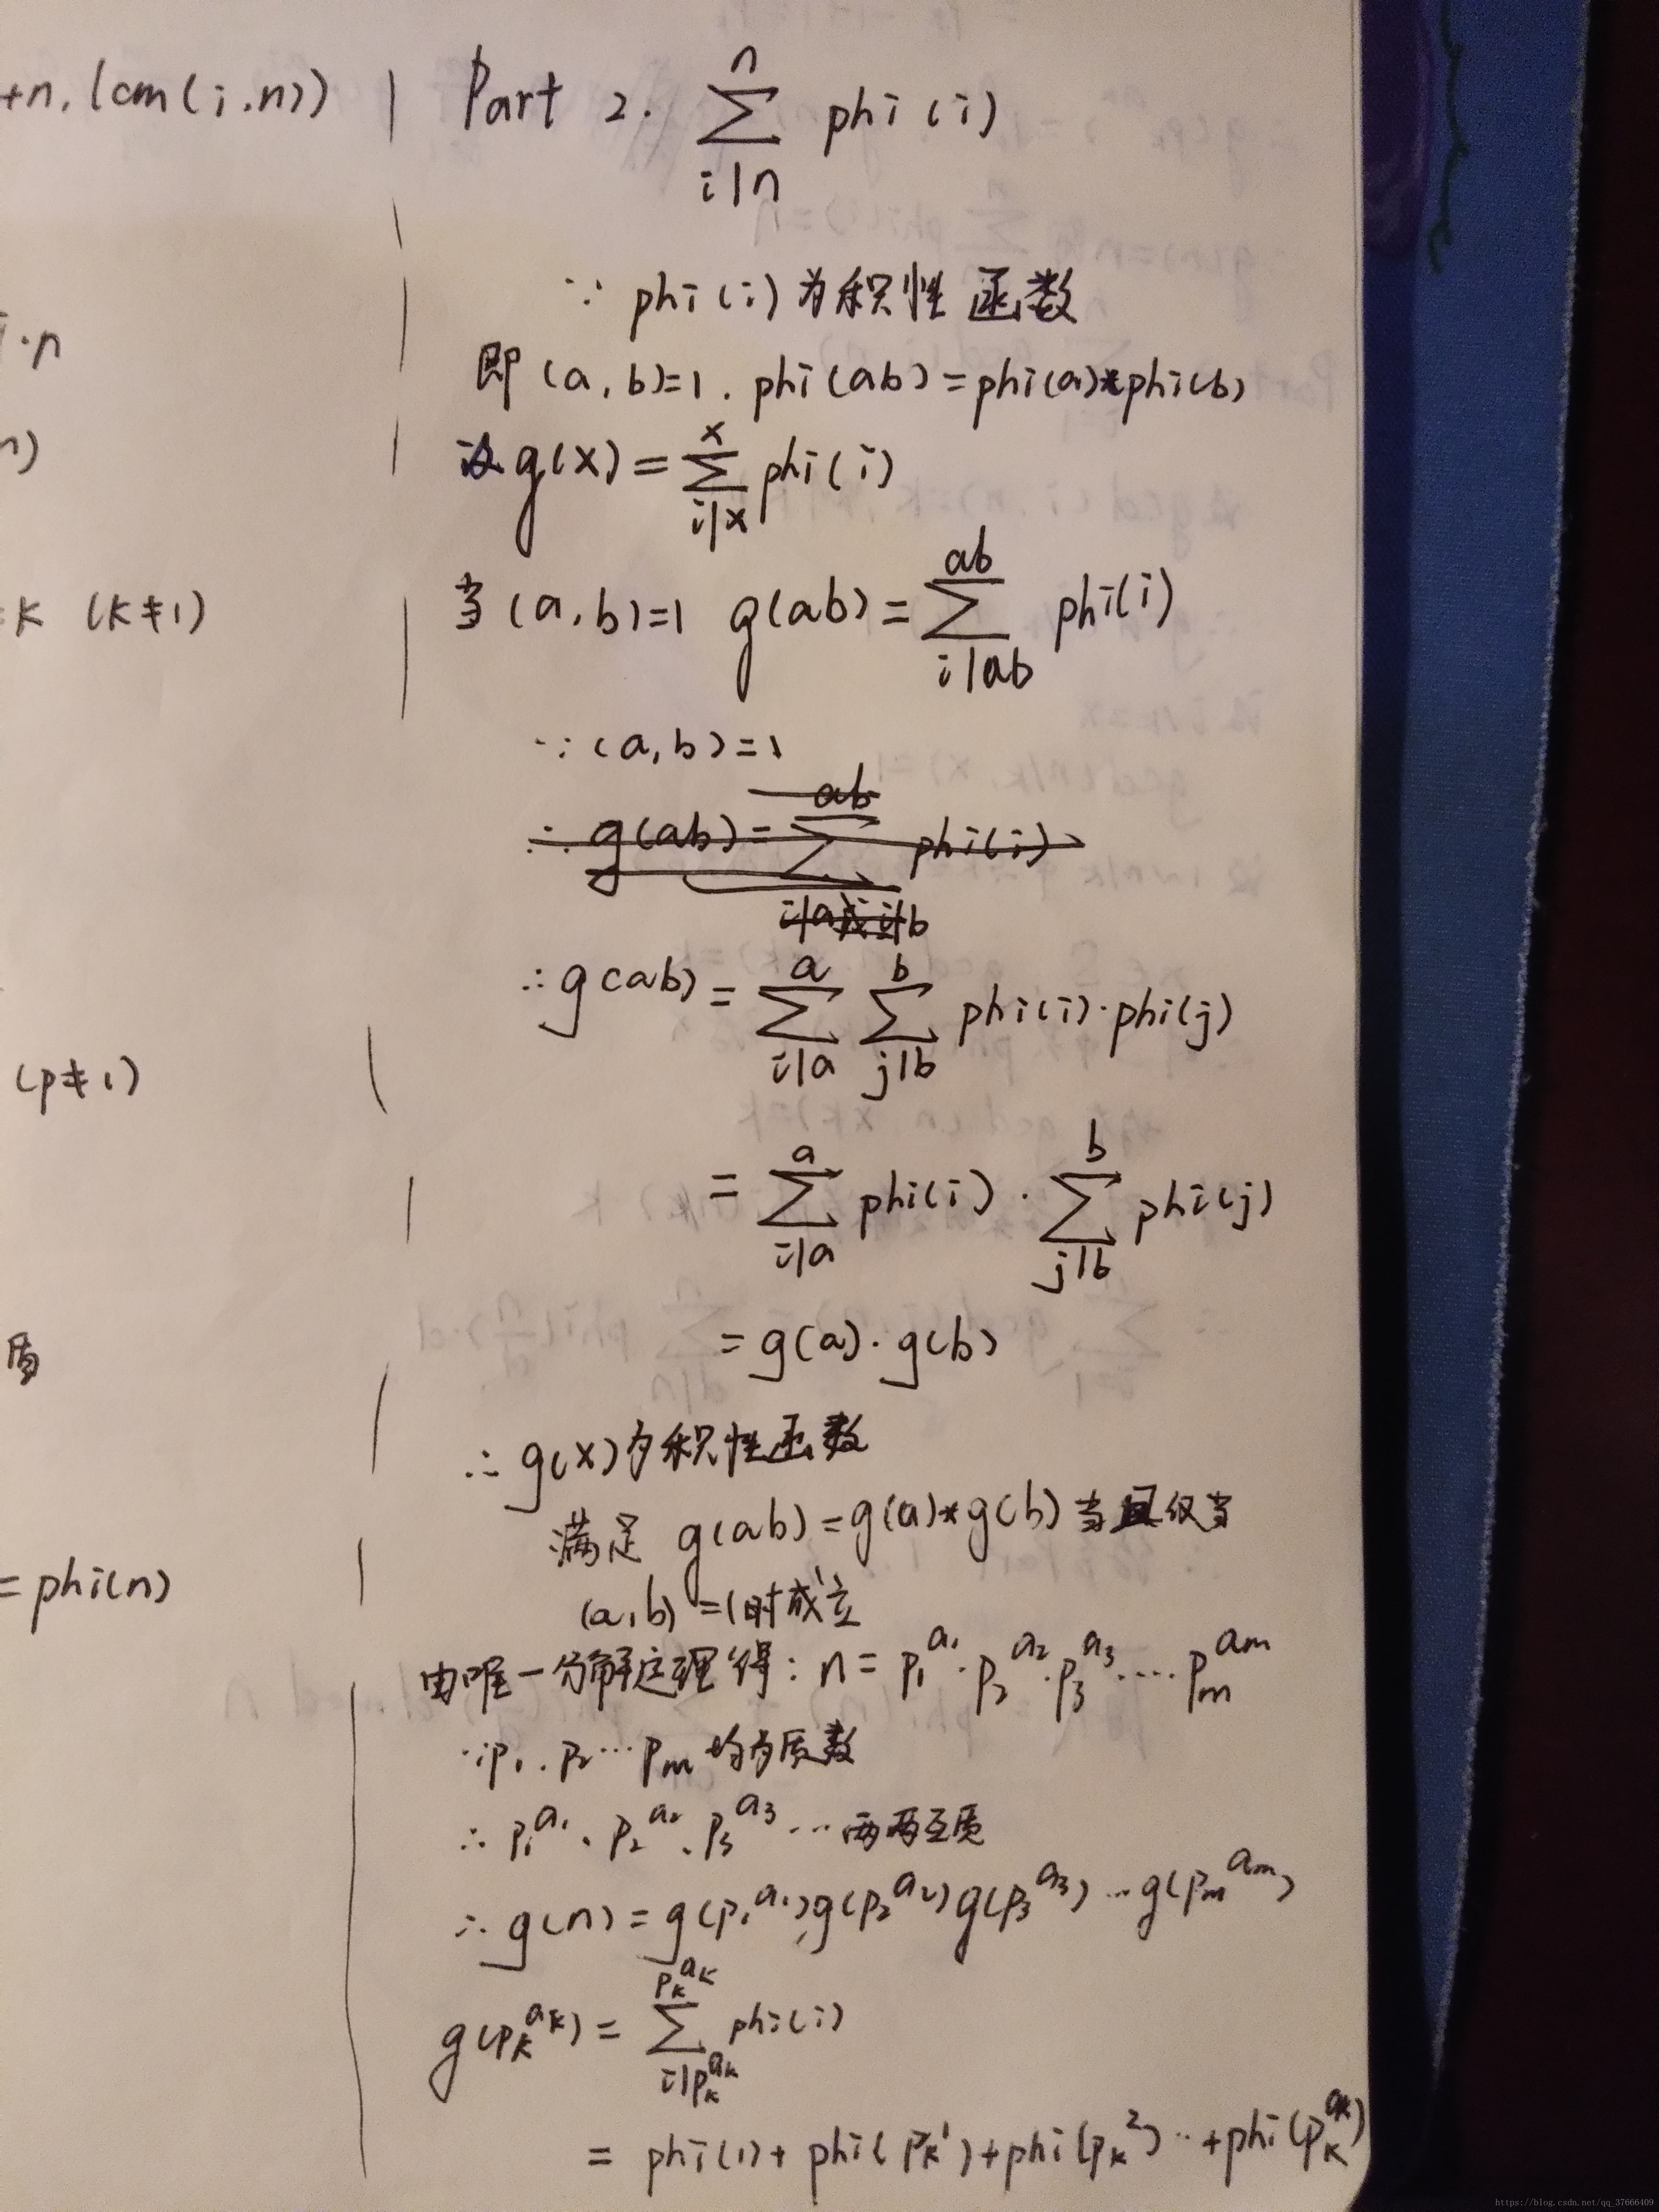 +n, lcm(i.n))
i·n
n)
=k (k≠1)
(p≠1)
质
=phi(n)
Part 2. n∑i|n phi(i)
∵ phi(i)为积性函数
即(a,b)=1. phi(ab)=phi(a)*phi(b)
设g(x)=x∑i|x phi(i)
当(a,b)=1 g(ab)=ab∑i|ab phi(i)
∵(a,b)=1
∴g(ab)=ab∑i|a或i|b phi(i)
∴g(ab)=a∑i|a b∑j|b phi(i)·phi(j)
=a∑i|a phi(i)·b∑j|b phi(j)
=g(a)·g(b)
∴g(x)为积性函数
满足 g(ab)=g(a)*g(b)当且仅当
(a,b)=1时成立
由唯一分解定理得:n=p₁^a₁·p₂^a₂·p₃^a₃····pₘ^aₘ
∵p₁.p₂···pₘ均为质数
∴p₁^a₁、p₂^a₂、p₃^a₃···两两互质
∴g(n)=g(p₁^a₁)g(p₂^a₂)g(p₃^a₃)···g(pₘ^aₘ)
g(pₖ^aₖ)=pₖ^aₖ∑i|pₖ^aₖ phi(i)
=phi(1)+phi(pₖ^1)+phi(pₖ^2)··+phi(pₖ^aₖ)
https://blog.csdn.net/qq_37666409